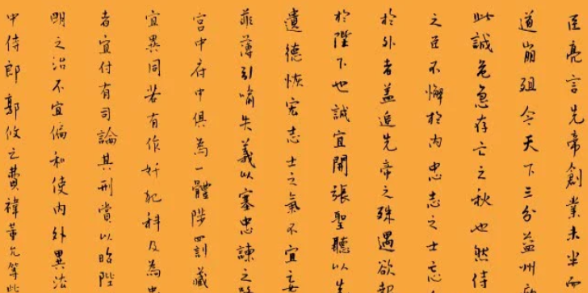 臣亮言先帝創業未半而
道崩殂今天下三分益州
此誠危急存亡之秋也然侍
之臣不懈於內忠志之士忘
於外者蓋追先帝之殊遇欲報
於陛下也誠宜開張聖聽以光
遺德恢宏志士之氣不宜妄
菲薄引喻失義以塞忠諫之
宮中府中俱為一體陟罰臧
宜異同若有作奸犯科及為忠
者宜付有司論其刑賞以昭陛
明之治不宜偏私使內外異法
中侍郎郭攸之費禕董允等此